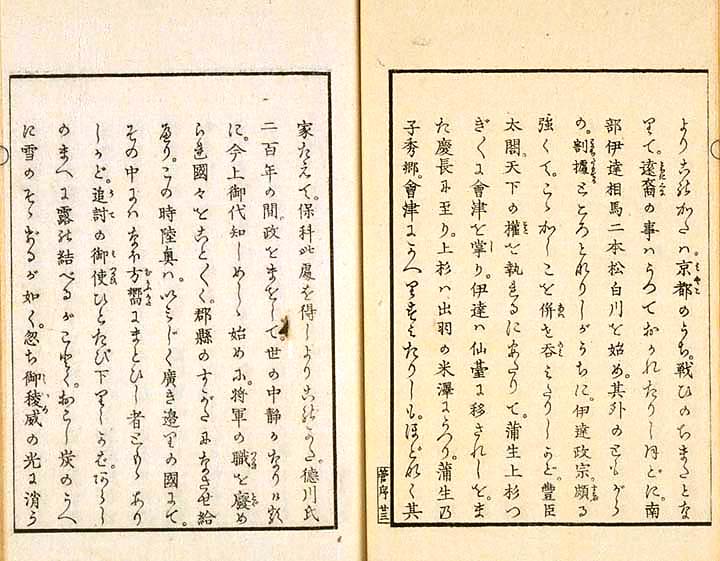 よりこのかたハ京都のうち。戦ひのちまたとな
りて。遠裔の事はうつておかれたりしほどに。南
部伊達相馬二本松白川を始め。其外のともがら
の。割據ところとれりしがうちに。伊達政宗。頗る
強くて。こゝかしこを併せ呑ミたりしかど。豊臣
太閤。天下の權を執るにあたりて。蒲生上杉つ
ぎ〱に會津を掌り。伊達ハ仙臺に移されしを。ま
た慶長に至り。上杉ハ出羽の米澤にうつり。蒲生乃
子秀郷。會津にかへりたりしも。ほどなく其
菅序 廿三
家たえて。保科此處を得しよりこのかた。德川氏
二百年の間。政をまをして。世の中靜かなりける
に。今上御代知しめしゝ始めに。將軍の職を廢め
られ國々をこと〲く。郡縣のすがたになさせ給
へり。この時陸奥ハ。いミじく廣き邊りの國にて。
その中にハなほ方嚮にまどひし者どもゝあり
しかど。追討の御使ひとたび下りしかば。
のまへに露の結べるがごとく。おこし炭のうへ
に雪のそゝげるが如く。忽ち御稜威の光に消う